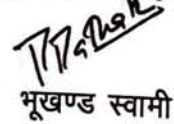 भूखण्ड स्वामी